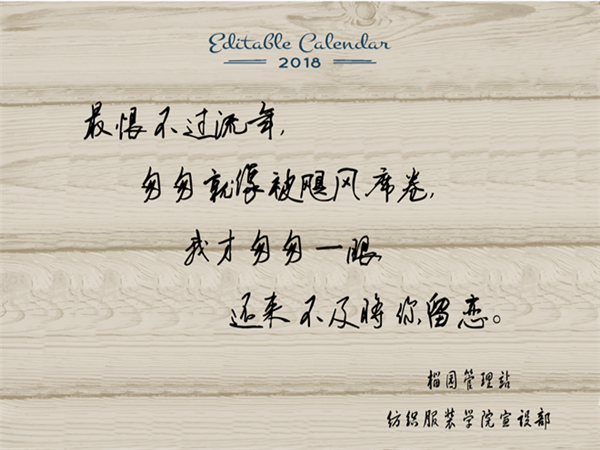 Editable Calendar
2018
最恨不过流年,
匆匆就像被飓风席卷,
我才匆匆一眼
还来不及将你留恋。
榴园管理站
纺织服装学院宣设部